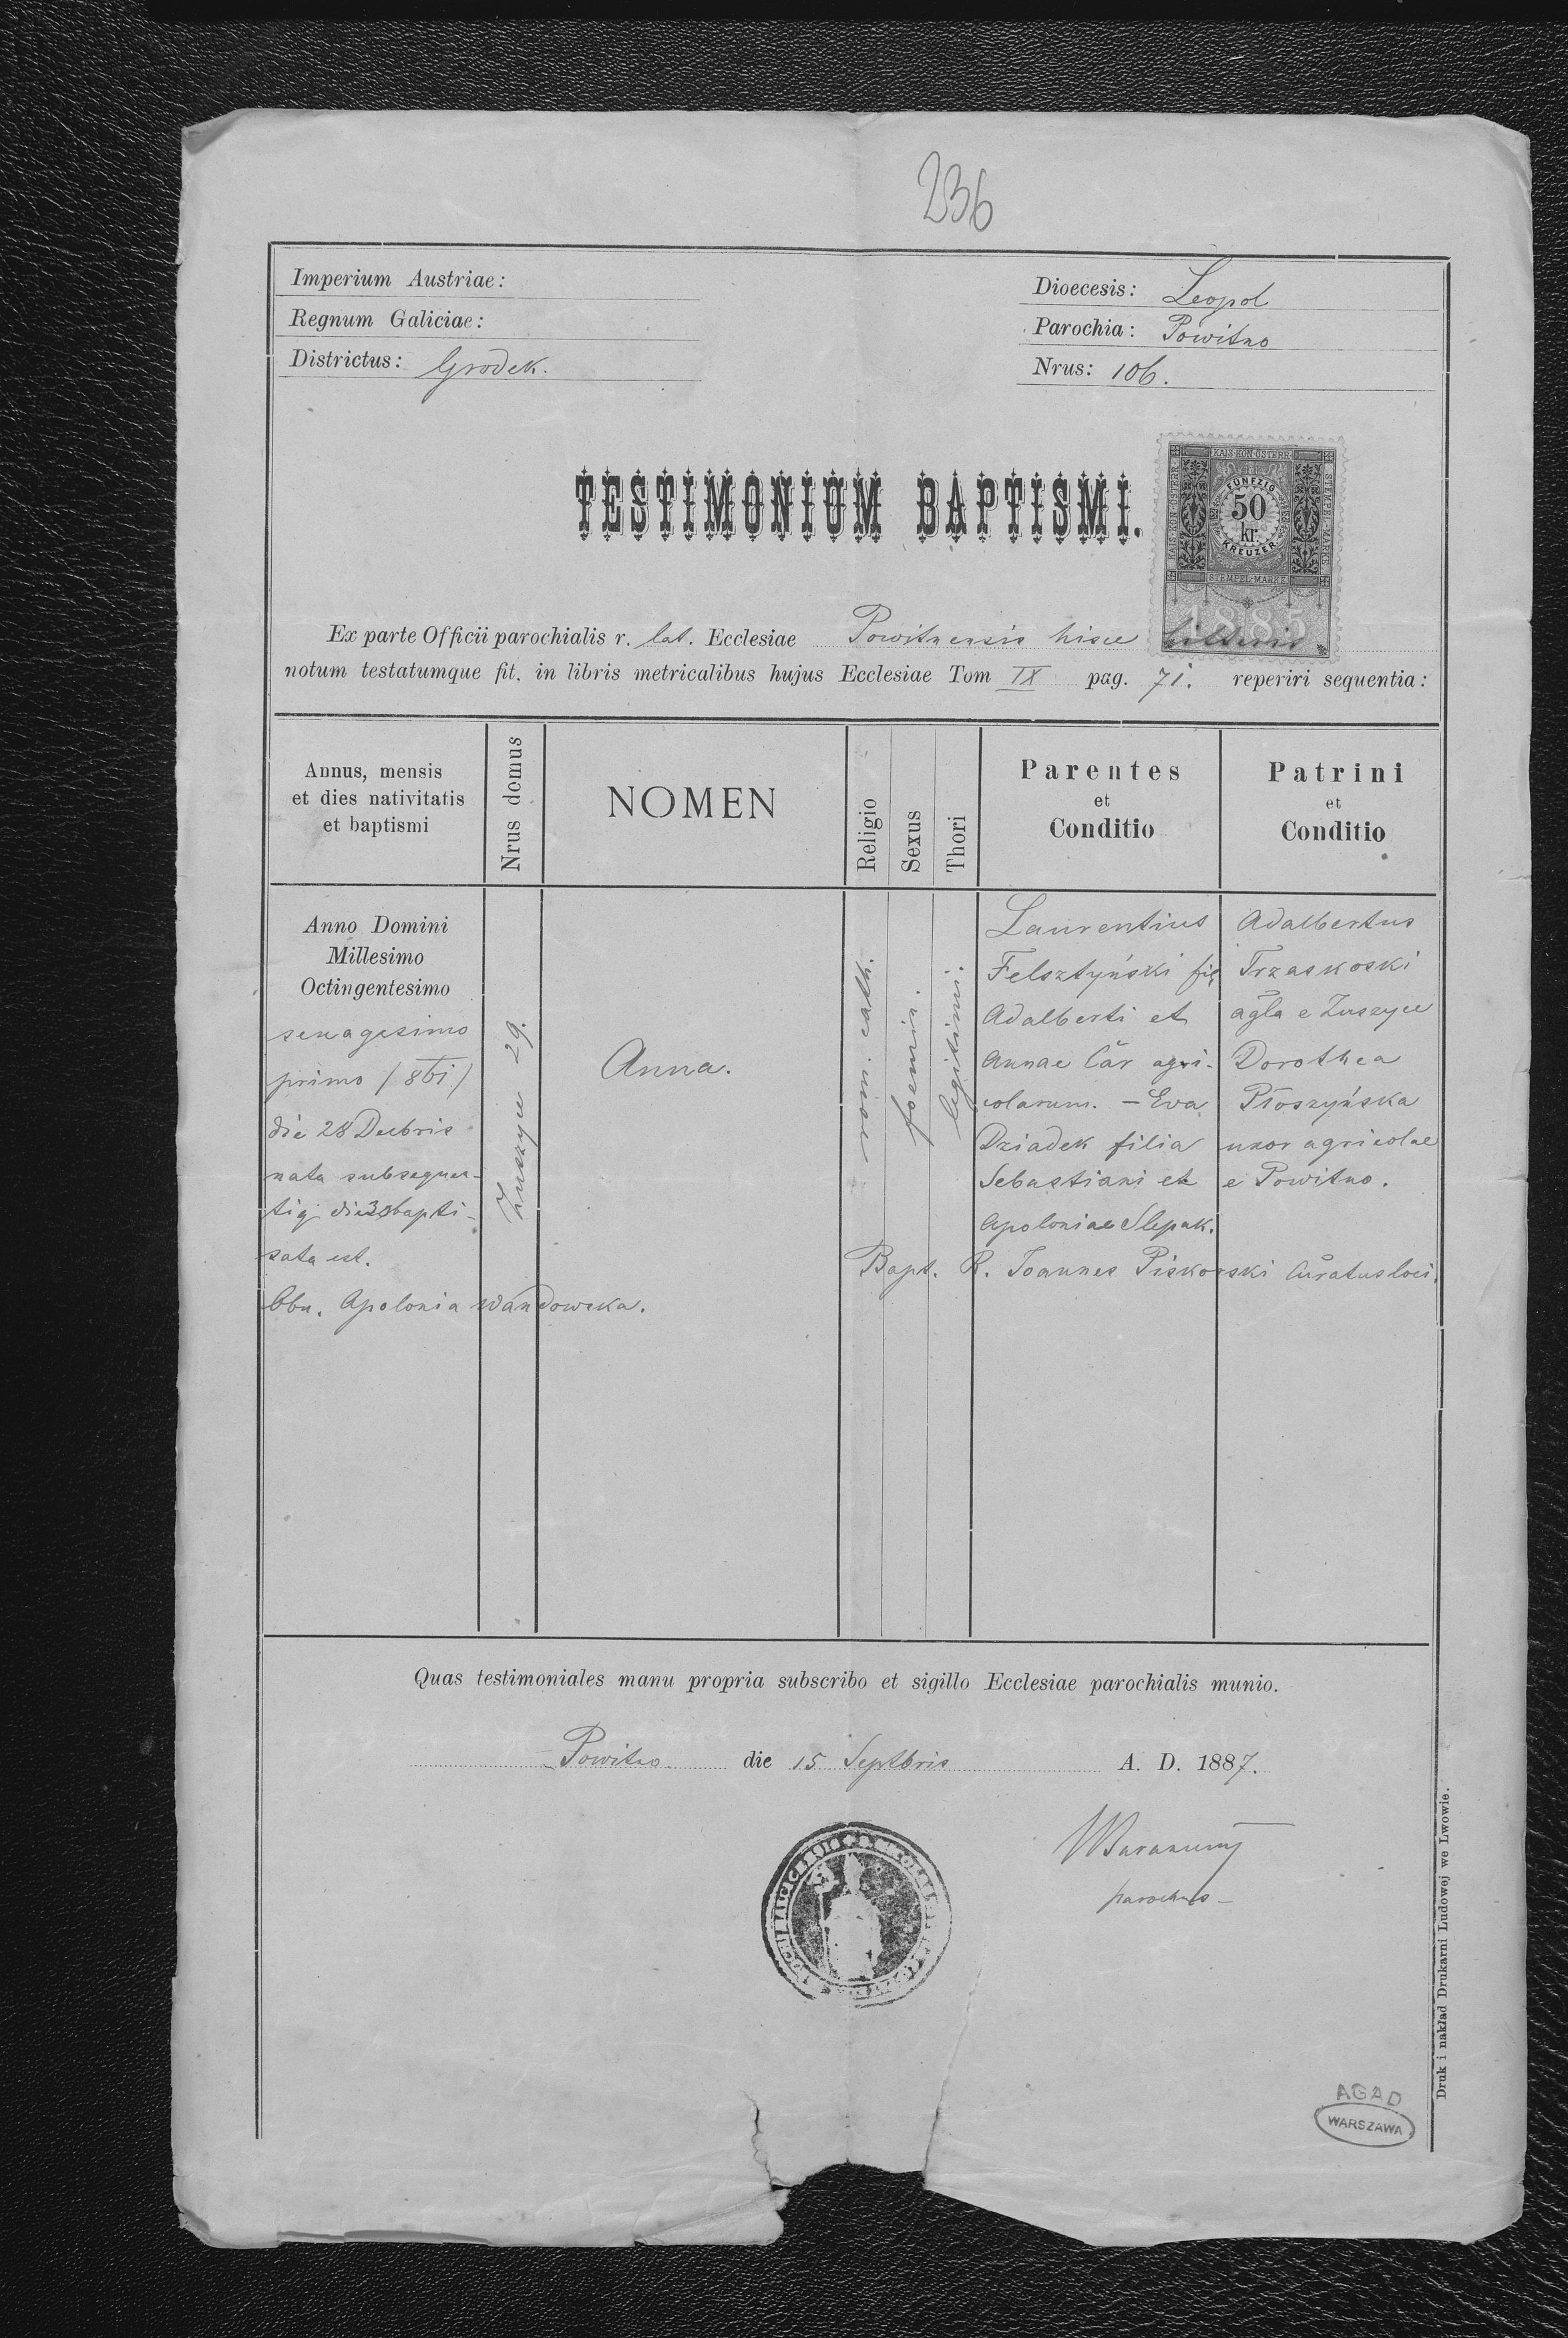 236
Imperium Austriae:
Regnum Galiciae:
Districtus: Grodek.
Dioecesis: Leopol
Parochia: Powitno
Nrus: 106.
TESTIMONIUM BAPTISMI.
KAIS·KÖN·ÖSTERR·
FÜNFZIG
50
kr.
KREUZER
STEMPEL-MARKE
1885
Ex parte Officii parochialis r. lat. Ecclesiae Powitnensis hisce litteris
notum testatumque fit, in libris metricalibus hujus Ecclesiae Tom IX pag. 71. reperiri sequentia:
Annus, mensis
et dies nativitatis
et baptismi
Nrus domus
NOMEN
Religio
Sexus
Thori
Parentes
et
Conditio
Patrini
et
Conditio
Anno Domini
Millesimo
Octingentesimo
sexagesimo
primo / 861 /
die 28 Decbris
nata subsequen-
tiq die 30 bapti-
sata est.
Obu. Apolonia Wandowska.
Zuszyce 29.
Anna.
rom. cath.
foemin.
legitimi.
Laurentius
Felsztyński fil
Adalberti et
Annae Cār agri-
colarum. – Eva
Dziadek filia
Sebastiani et
Apoloniae Slepak.
Adalbertus
Trzaskoski
agla e Zuszyce
Dorothea
Płoszyńska
uxor agricolae
e Powitno.
Bapt. R. Joannes Piskorski Curatus loci.
Quas testimoniales manu propria subscribo et sigillo Ecclesiae parochialis munio.
Powitno die 15 Septbris A. D. 1887.
parochus
Druk i nakład Drukarni Ludowej we Lwowie.
AGAD
WARSZAWA